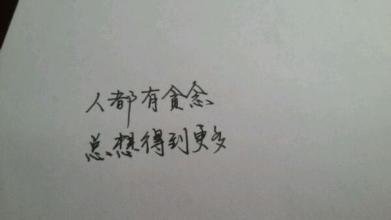 人都有贪念
总想得到更多